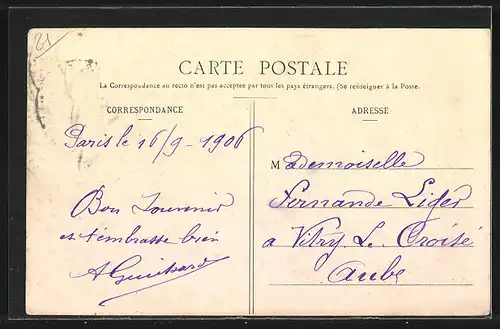 21
CARTE POSTALE
La Correspondance au recto n'est pas acceptée par tous les pays étrangers. (Se renseigner à la Poste.
CORRESPONDANCE
Paris le 16/9-1906
Bon Souvenir
et t'embrasse bien
ADRESSE
Mademoiselle
Fernande Liger
a Vitry Le Croisé
Aube